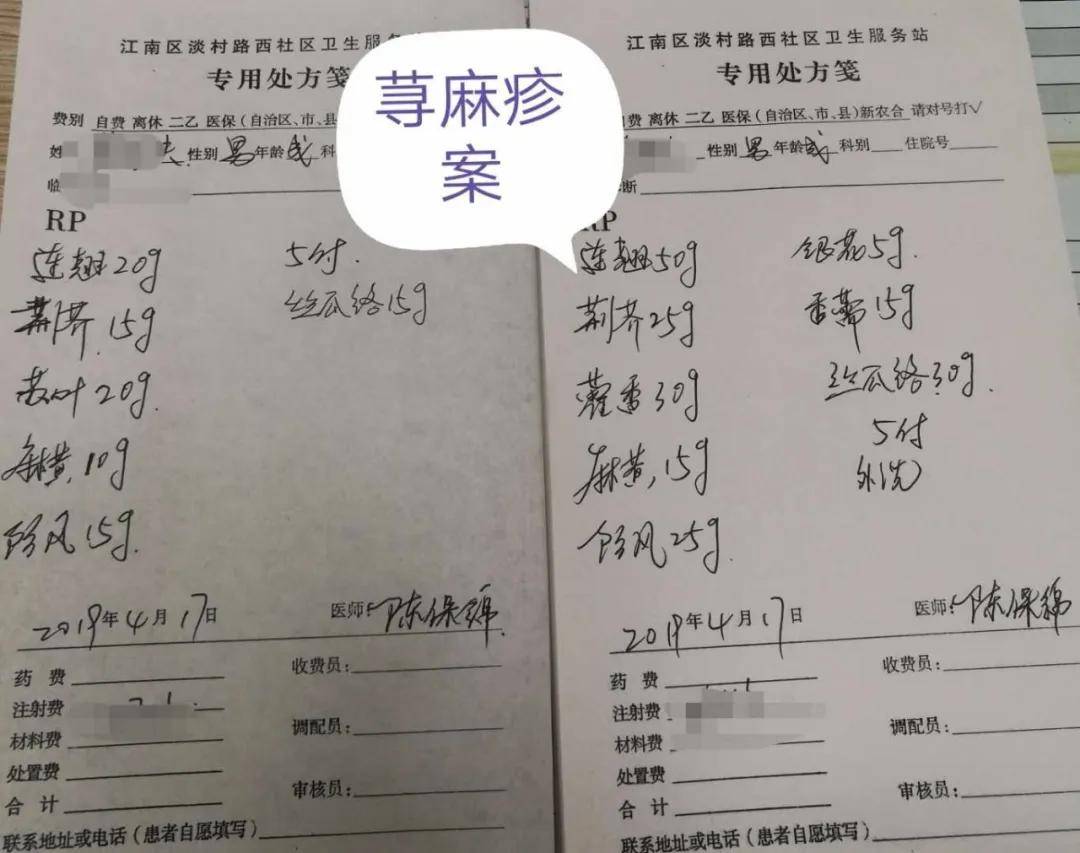 荨麻疹
案
江南区淡村路西社区卫生服
专用处方笺
费别 自费 离休 二乙 医保(自治区、市、县
姓 性别 男 年龄 成 科
临
RP
连翘20g 5付.
荆芥15g 丝瓜络15g
苏叶20g.
麻黄,10g
防风15g.
2019年4月17日 医师: 陈保绵
药 费 收费员:
注射费
材料费 调配员:
处置费
合 计 审核员:
联系地址或电话(患者自愿填写)
江南区淡村路西社区卫生服务站
专用处方笺
费 离休 二乙 医保(自治区、市、县)新农合 请对号打√
性别 男 年龄 成 科别 住院号
诊断
RP
连翘50g 银花5g.
荆芥25g 香薷15g
藿香30g 丝瓜络30g.
麻黄,15g 5付
防风25g. 外洗
2019年4月17日 医师: 陈保绵
药 费 收费员:
注射费
材料费 调配员:
处置费
合 计 审核员:
联系地址或电话(患者自愿填写)